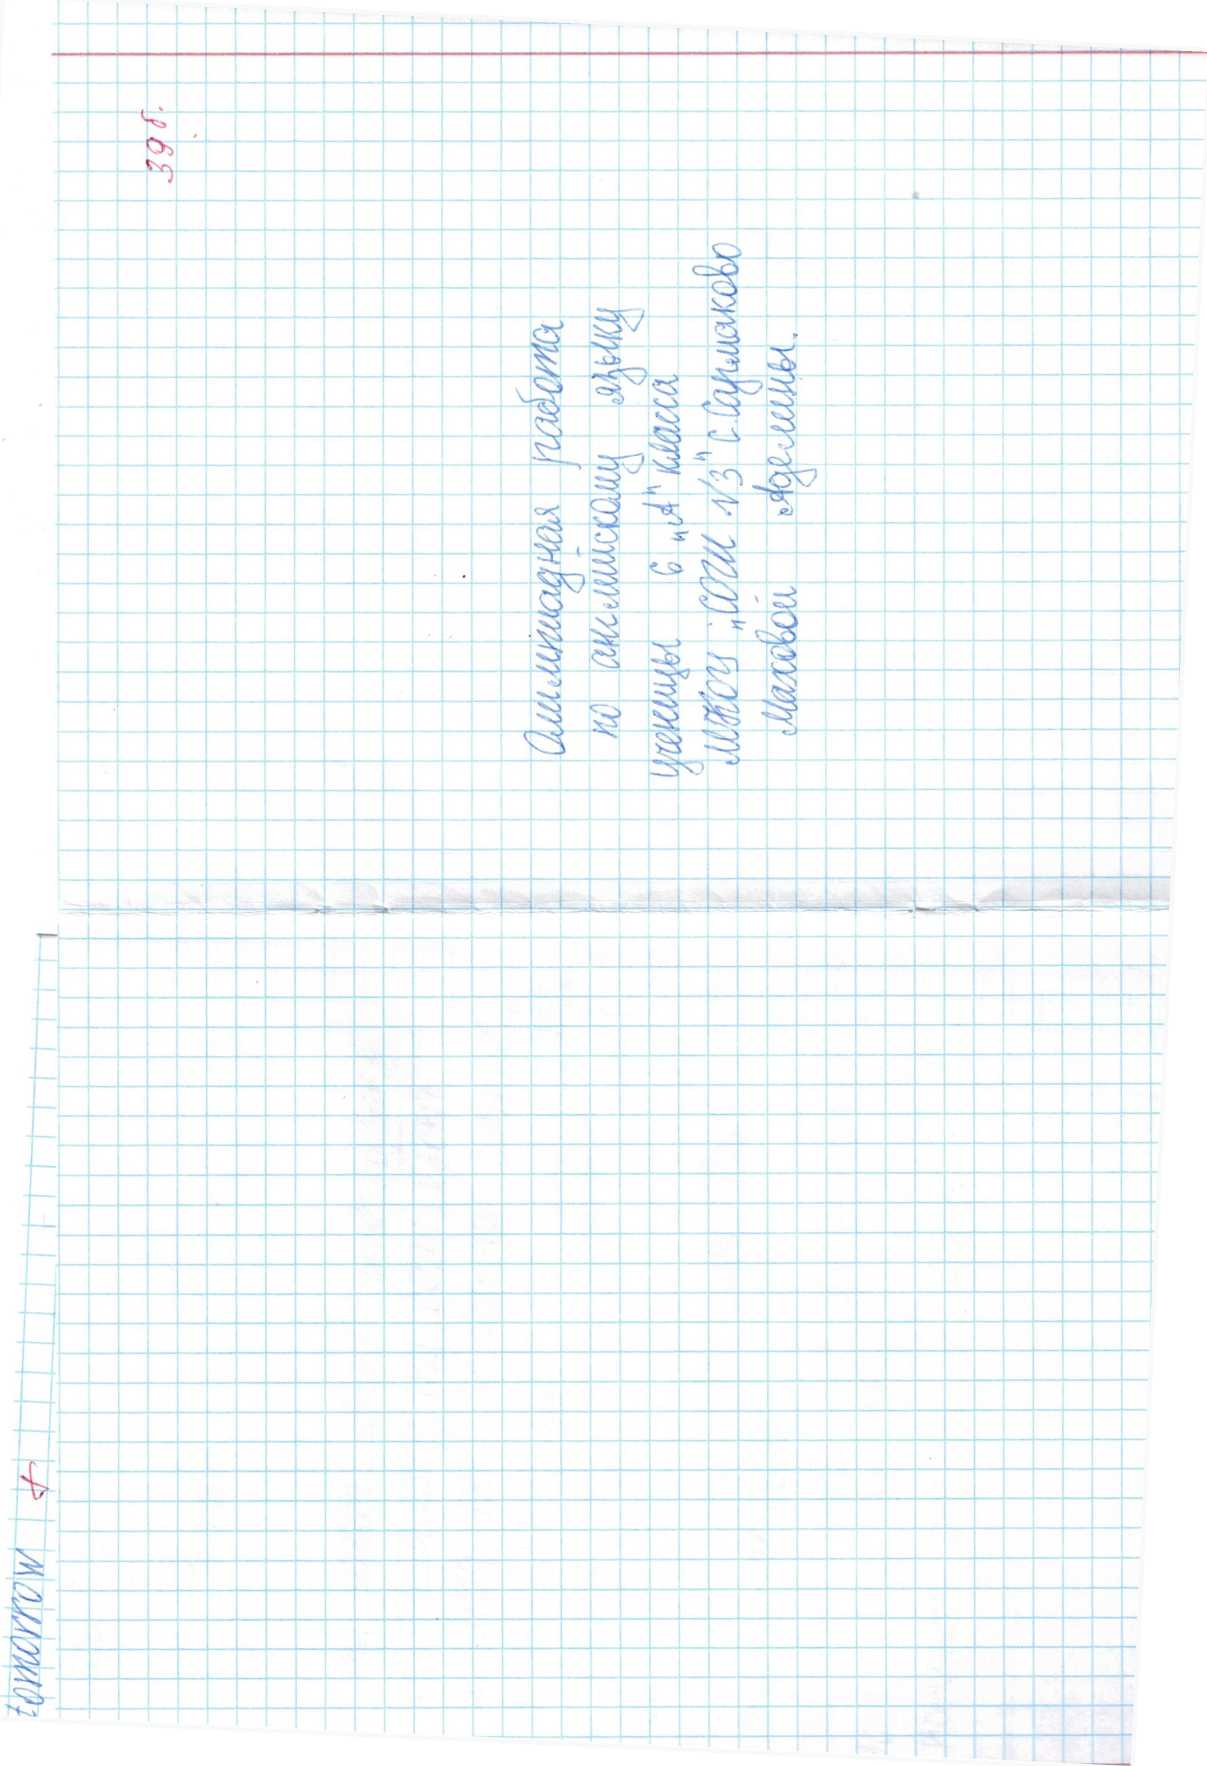 39 б.
Олимпиадная работа
по английскому языку
ученицы 6 "А" класса
МКОУ "СОШ №3" с. Сармаково
Маховой Аделины.
tomorrow +